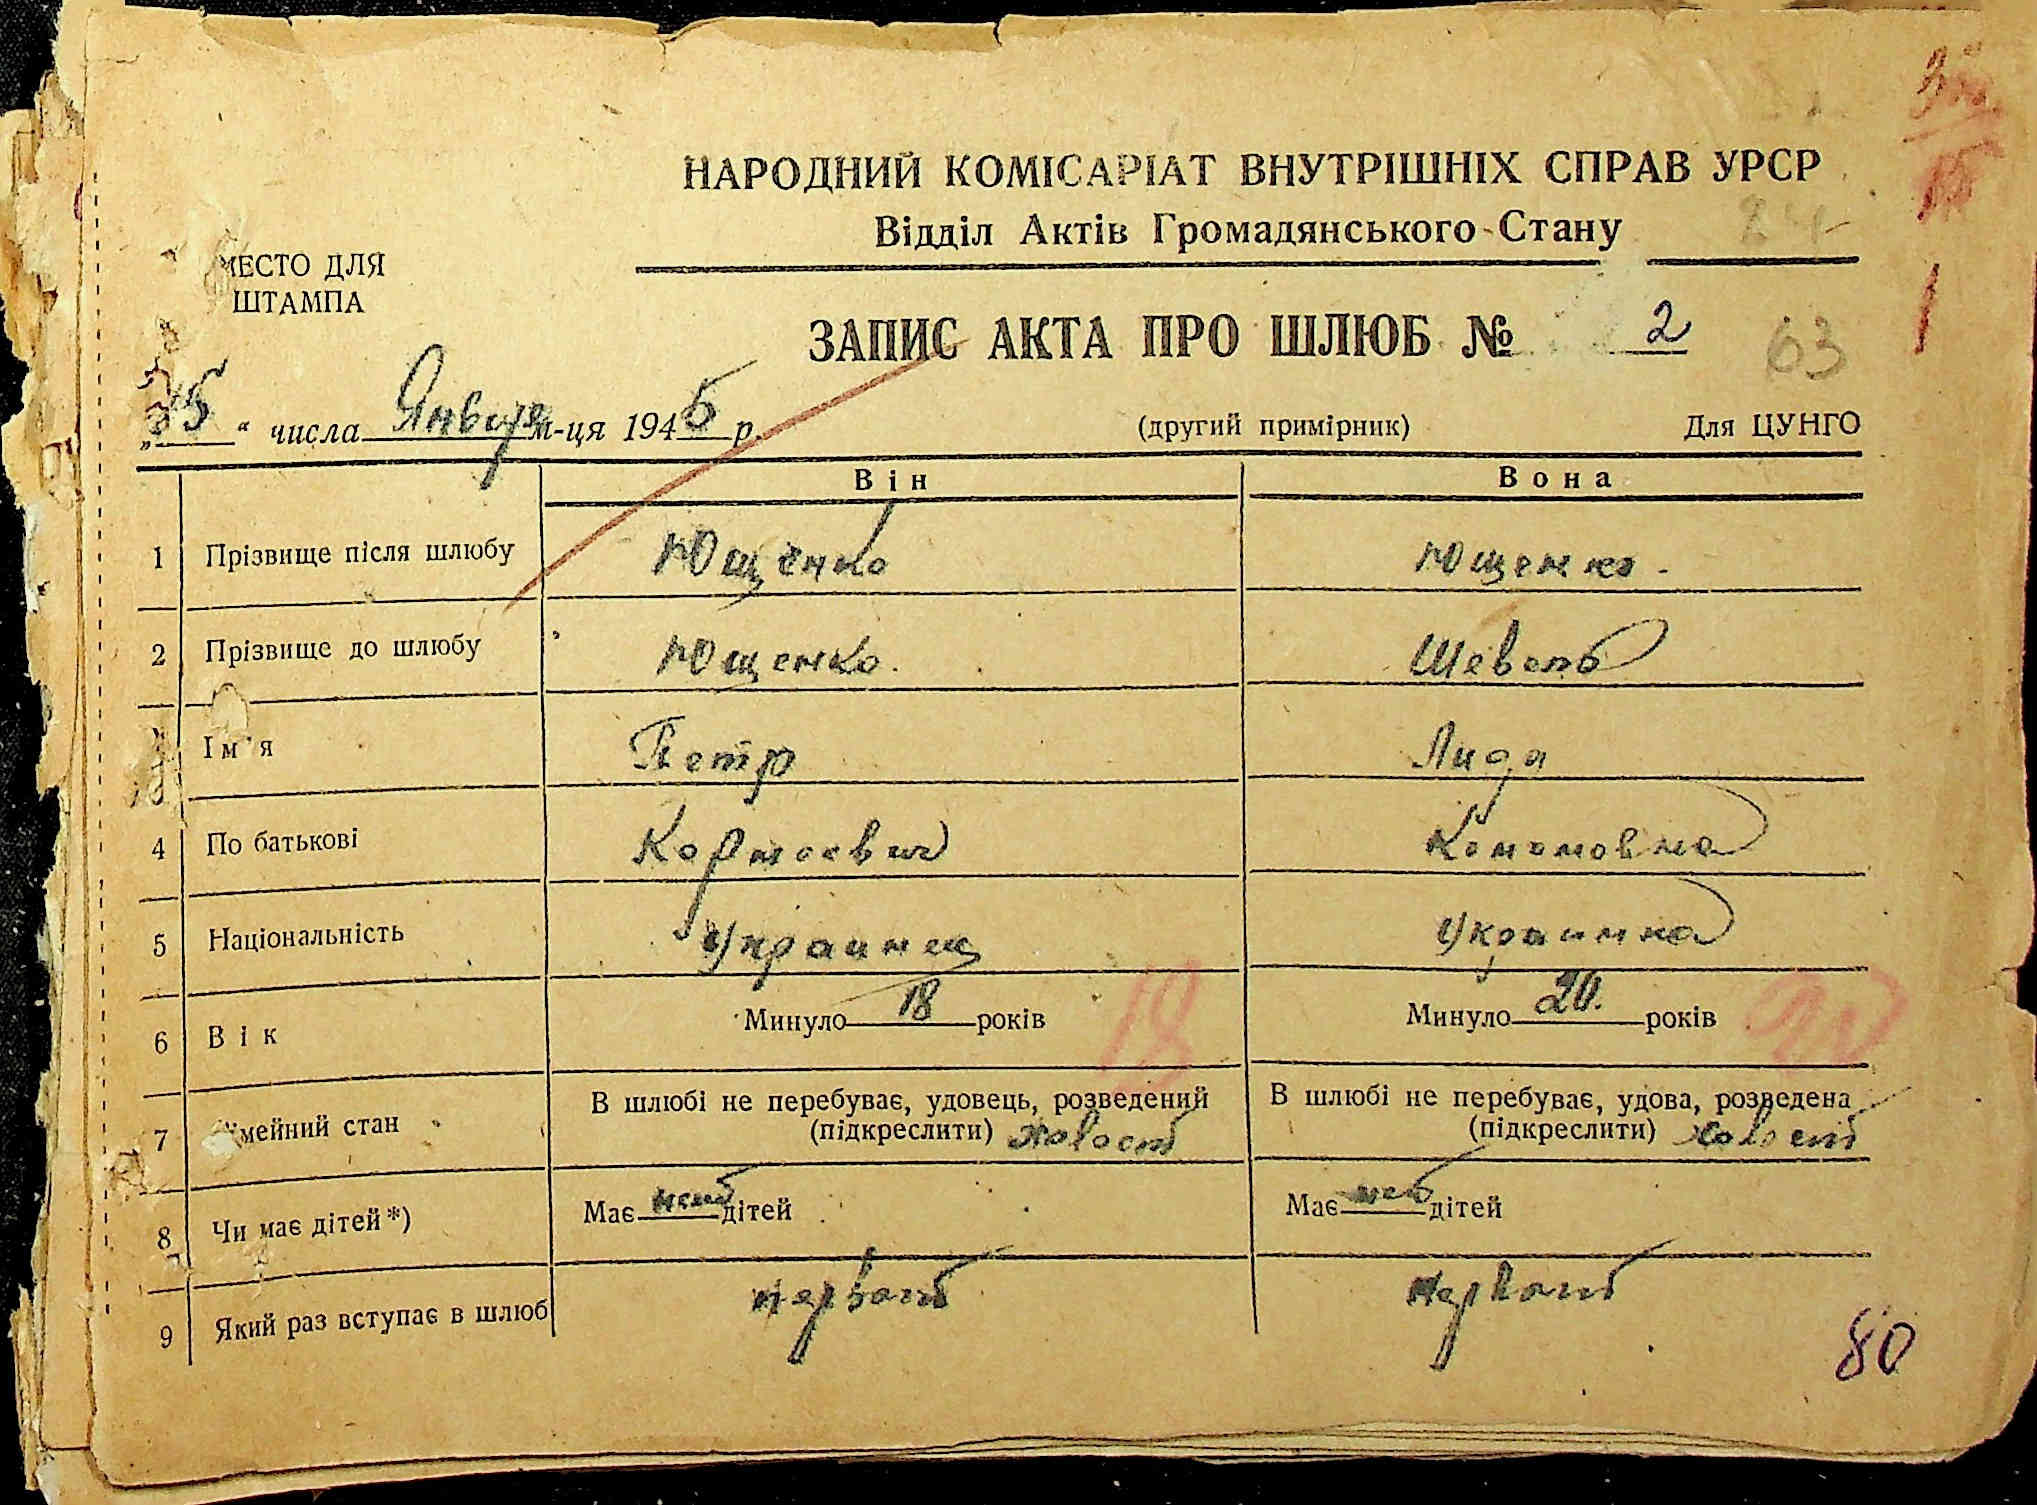 НАРОДНИЙ КОМІСАРІАТ ВНУТРІШНІХ СПРАВ УРСР
Відділ Актів Громадянського Стану
МЕСТО ДЛЯ
ШТАМПА
ЗАПИС АКТА ПРО ШЛЮБ № 2
63
„15“ числа Января м-ця 1945 р.
(другий примірник) Для ЦУНГО
Він Вона
1 Прізвище після шлюбу Ющенко Ющенко
2 Прізвище до шлюбу Ющенко.
Ім'я Петр Лида
4 По батькові Кононовна
5 Національність Украинец Украинка
6 Вік Минуло 18 років 18 Минуло 20. років 20
В шлюбі не перебуває, удовець, розведений В шлюбі не перебуває, удова, розведена
7 імейний стан (підкреслити) холост (підкреслити) холост
8 Чи має дітей*) Має нет дітей Має нет дітей
9 Який раз вступає в шлюб первый первый
80